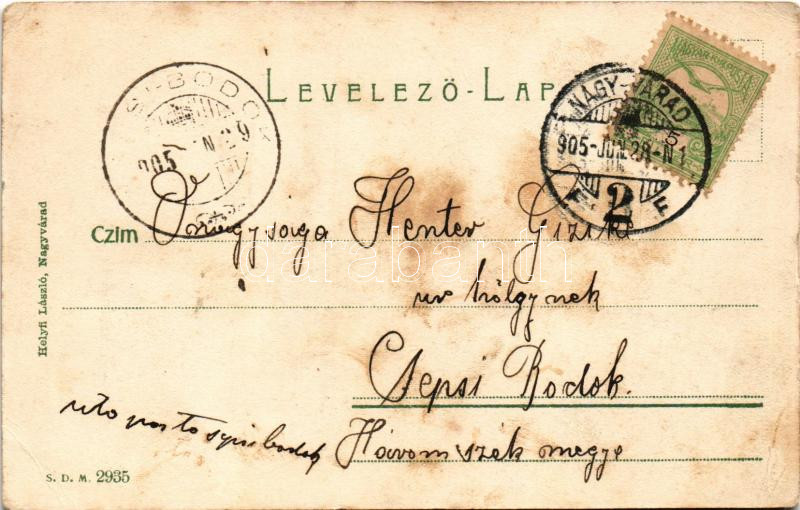 LEVELEZŐ-LAP
SI-BODOK
905 JUN 29
NAGY-VÁRAD
905-JUN.28-N1
2
F
MAGYAR KIR. POSTA
5
Czim Őnagysága Henter Gizike
úr hölgynek
Sepsi Bodok.
Háromszék megye
utó posta
Helyfi László, Nagyvárad
S. D. M. 2935
darabanth